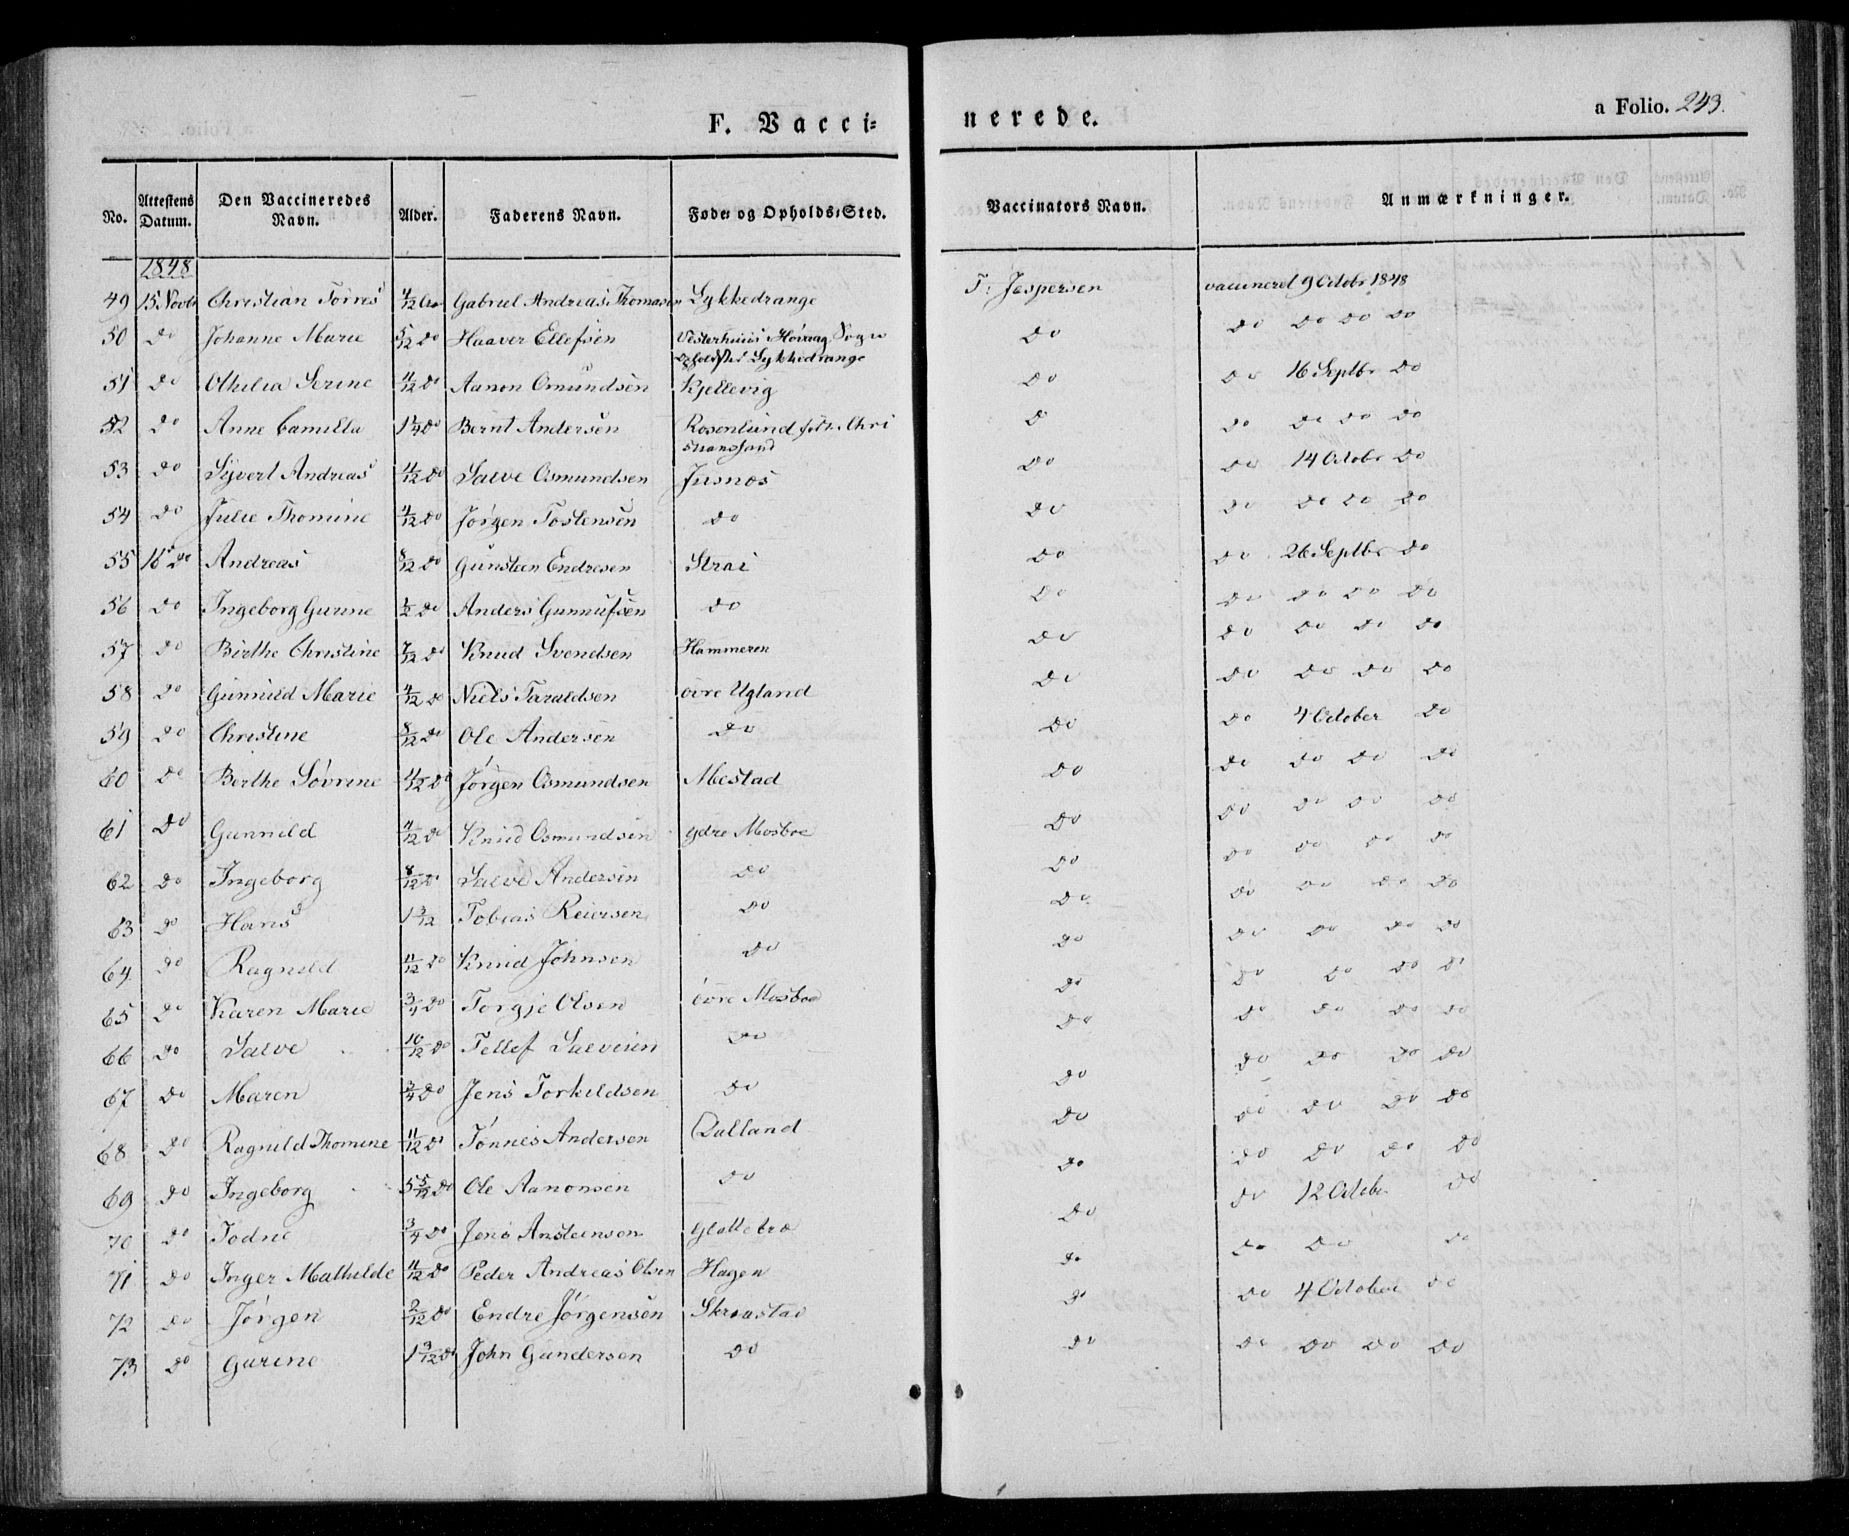 F. Vaccinerede. a Folio. 243.
No. Attestens Datum. Den Vaccineredes Navn. Alder. Faderens Navn. Føde- og Opholds-Sted. Vaccinators Navn. Anmærkninger.
1848
49 15 Novbr Christian Torres 4/12 Gabriel Andreas Thomasen Lykkedrange T: Jespersen vaccineret 9 Octobr 1848
50 Do Johanne Marie 5/12 Do Haaver Ellefsen Vesterhuus i Høivaag Sogn Do Do Do Do Do
Lykkedrange
51 Do Othilia Serine 4/12 Do Aanon Omundsen Kjellevig Do Do 16 Septbr Do
52 Do Anne Camilla 1 1/4 Do Bernt Andersen Rosenlund Chri Do Do Do Do
stianssand
53 Do Syvert Andreas 4/12 Do Salve Osmundsen Jusnes Do Do 14 Octobr Do
54 Do Julie Thomine 4/12 Do Jørgen Tostensen Do Do Do Do Do Do
55 16 Do Andreas 8/12 Do Gunsteen Endresen Strai Do Do 26 Septbr Do
56 Do Ingeborg Gurine 1/2 Do Anders Gunnufsen Do Do Do Do Do Do
57 Do Birthe Christine 7/12 Do Knud Svendsen Hammeren Do Do Do Do Do
58 Do Gunnild Marie 4/12 Do Niels Taraldsen øvre Ugland Do Do Do Do Do
59 Do Christine 8/12 Do Ole Andersen Do Do Do 4 October Do
60 Do Berthe Sövrine 4/12 Do Jørgen Osmundsen Mestad Do Do Do Do Do
61 Do Gunnild 4/12 Do Knud Osmundsen ydre Mosboe Do Do Do Do Do
62 Do Ingeborg 8/12 Do Salve Andersen Do Do Do Do Do Do
63 Do Hans 1 3/12 Tobias Reiersen Do Do Do Do Do Do
64 Do Ragnild 11/12 Do Knud Johnsen Do Do Do Do Do Do
65 Do Karen Marie 3/4 Do Torgje Olsen övre Mosboe Do Do Do Do Do
66 Do Salve 10/12 Do Tellef Salvesen Do Do Do Do Do Do
67 Do Maren 3/4 Do Jens Torkildsen Do Do Do Do Do Do
68 Do Ragnild Thomine 11/12 Do Tønnes Andersen Dalland Do Do Do Do Do
69 Do Ingeborg 5 5/12 Do Ole Aanonsen Do Do Do Do Do Do
70 Do Todne 3/4 Do Jens Ansteensen Glattetræ Do Do 12 Octobr Do
71 Do Inger Mathilde 4/12 Do Peder Andreas Olsen Hagen Do Do Do Do
72 Do Jørgen 2/12 Do Endre Jørgensen Skraastad Do Do 4 October Do
73 Do Gurine 1 3/12 Do John Gundersen Do Do Do Do Do Do